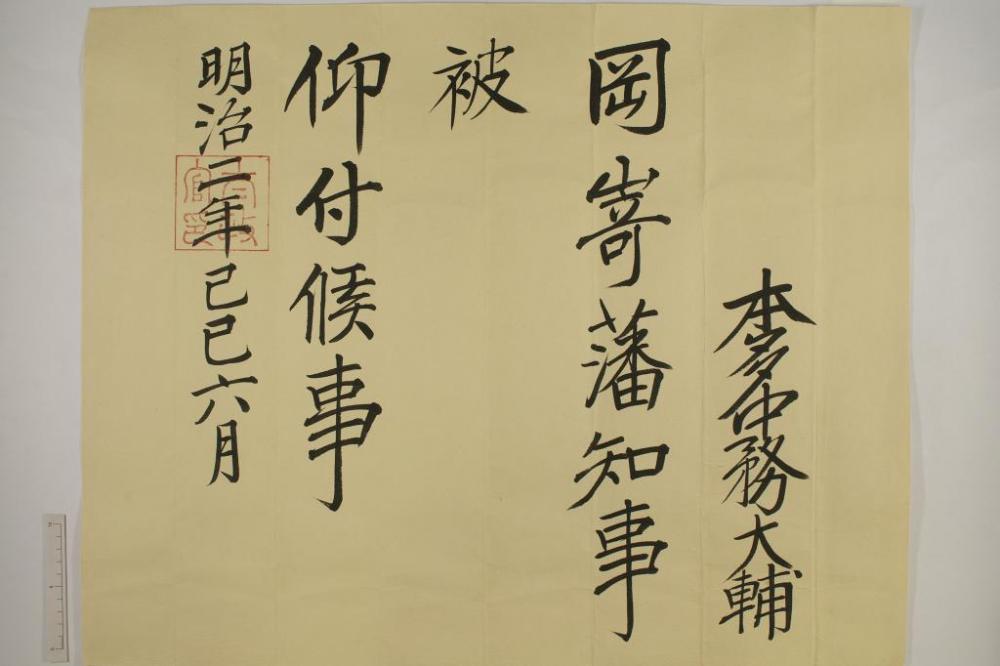 本多中務大輔
岡嵜藩知事
被
仰付候事
明治二年己巳六月